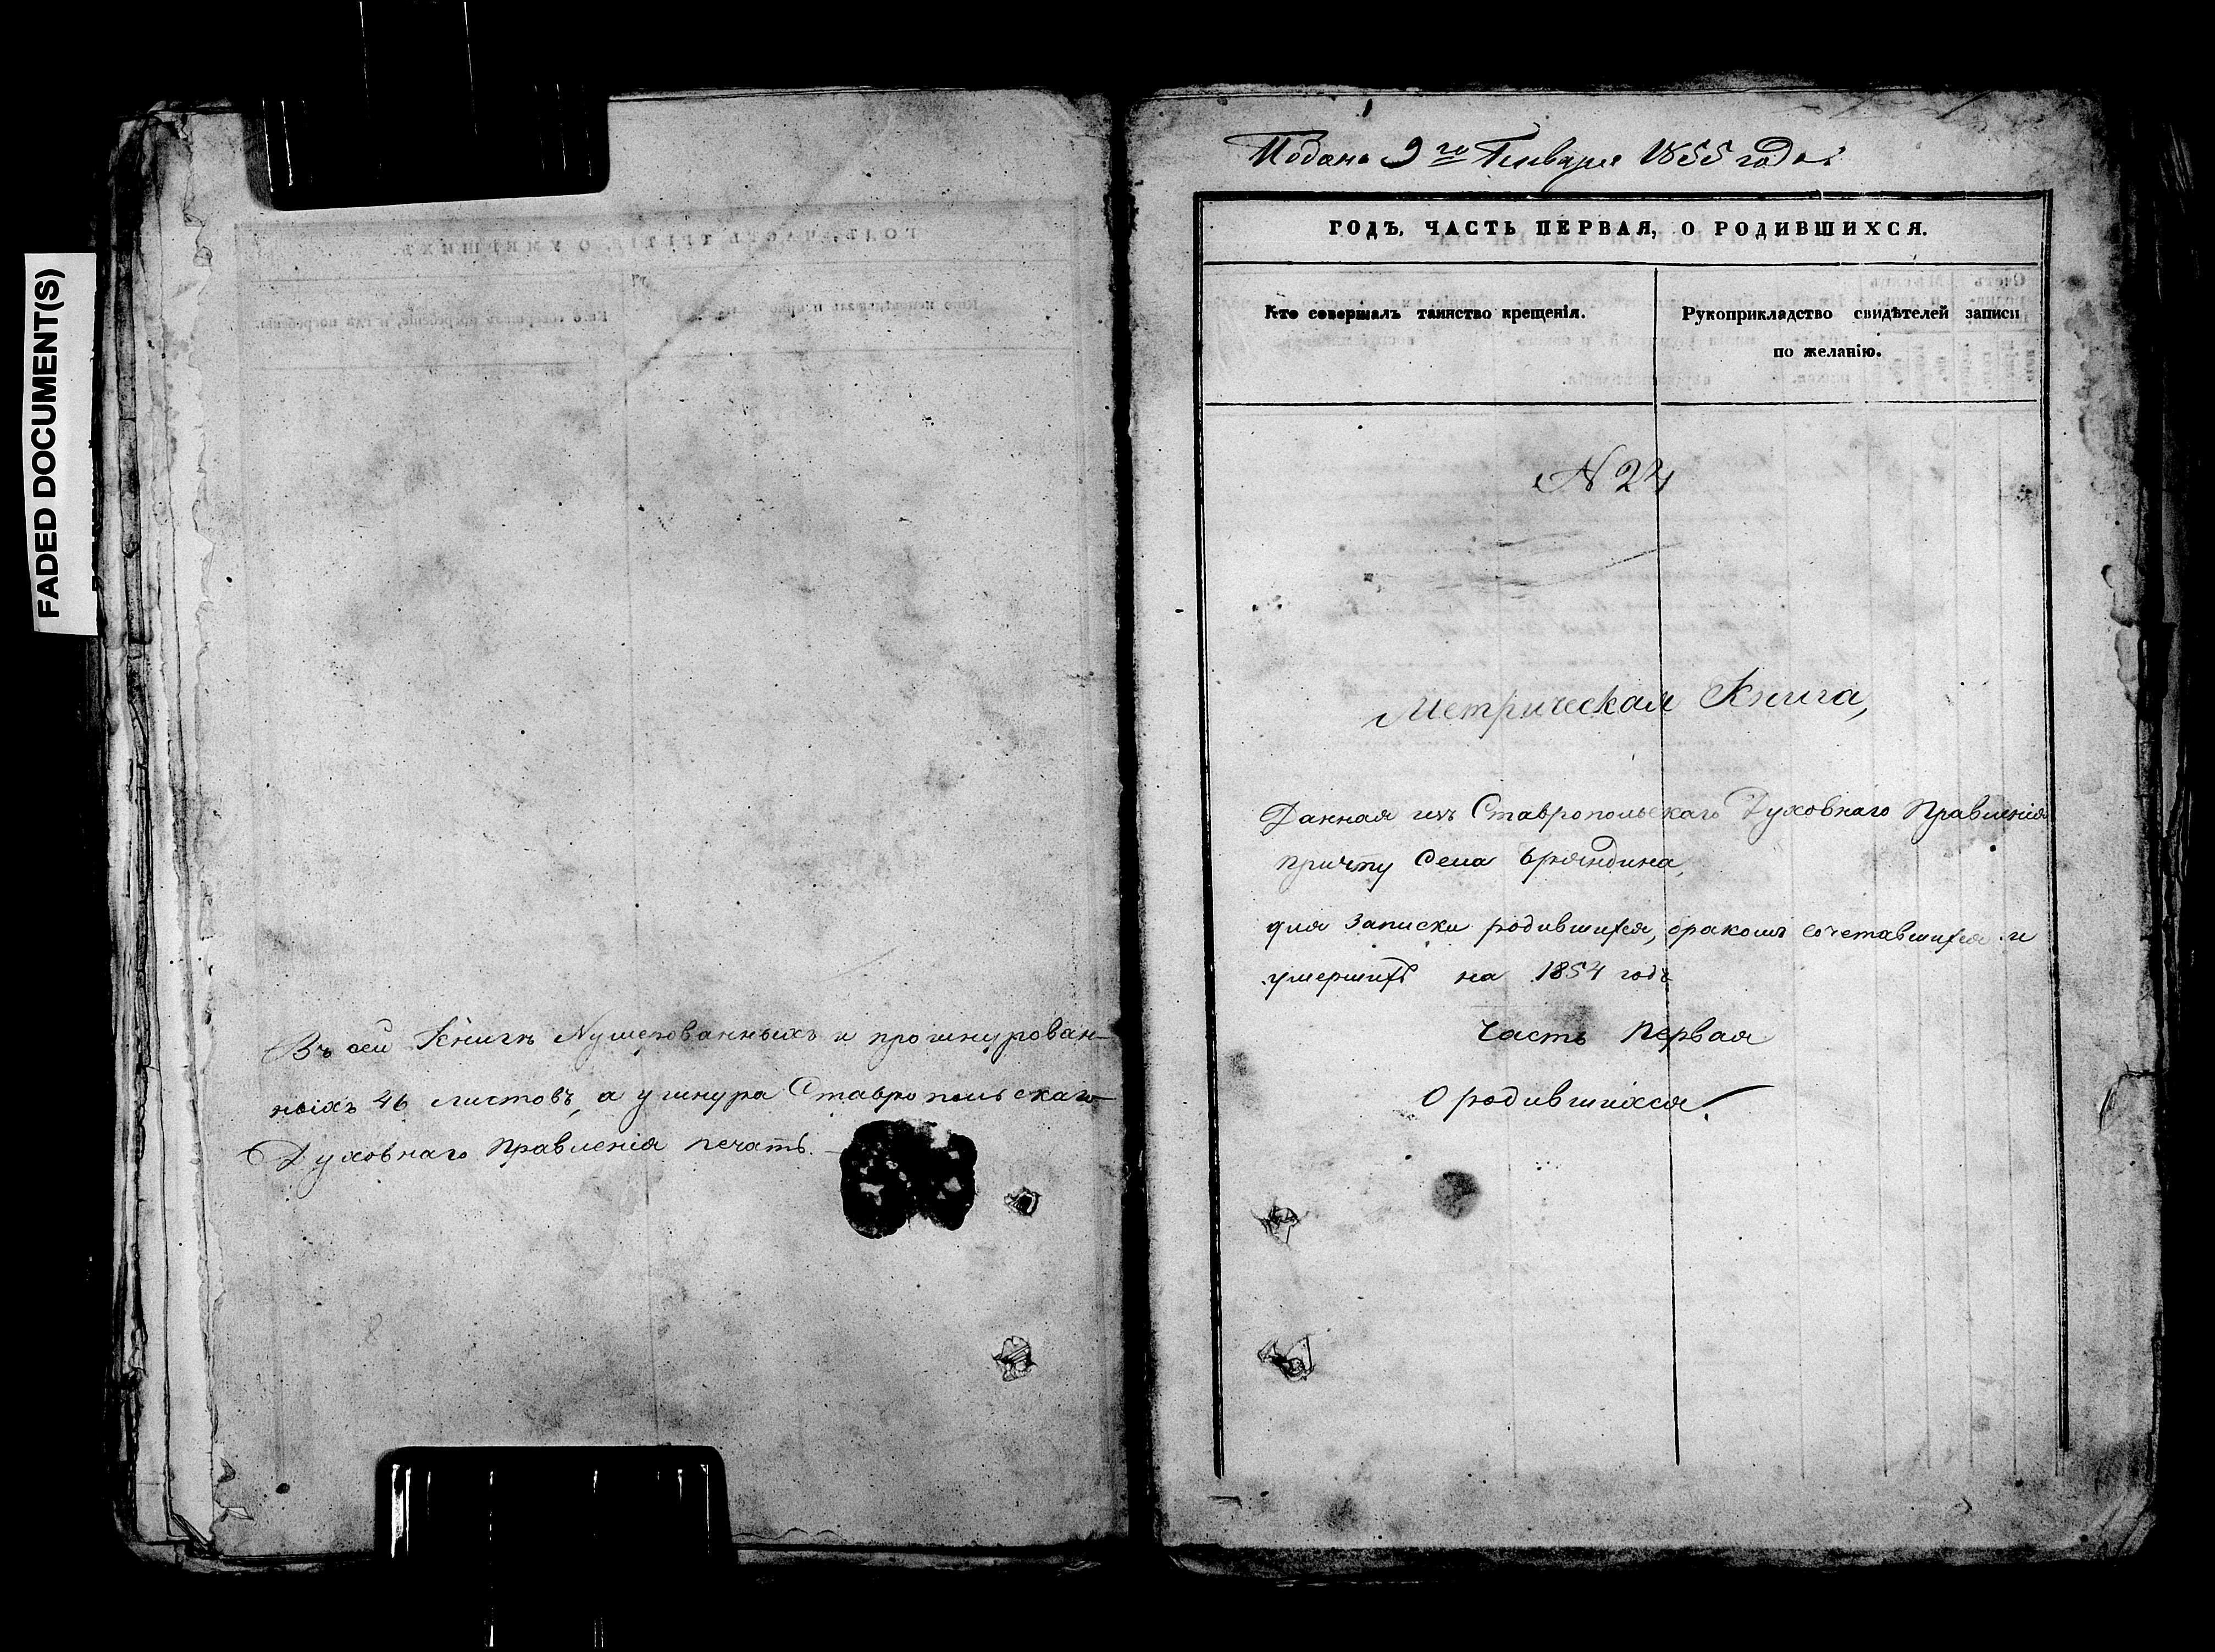 FADED DOCUMENT(S)
Въ сей Книгѣ Нумерованныхъ и прошнурован-
ныхъ 46 листовъ, а у шнура Ставропольскаго
Духовнаго Правленія печать.
8
Подана 9го Генваря 1855 года.
ГОДЪ, ЧАСТЬ ПЕРВАЯ, О РОДИВШИХСЯ.
Кто совершалъ таинство крещенія.
Рукоприкладство свидѣтелей записи
по желанію.
N 24
Метрическая Книга,
Данная изъ Ставропольскаго Духовнаго Правленія
причту Села Бряндина,
для записки родившихся, бракомъ сочетавшихся и
умершихъ на 1854 годъ
Часть Первая
О родившихся.